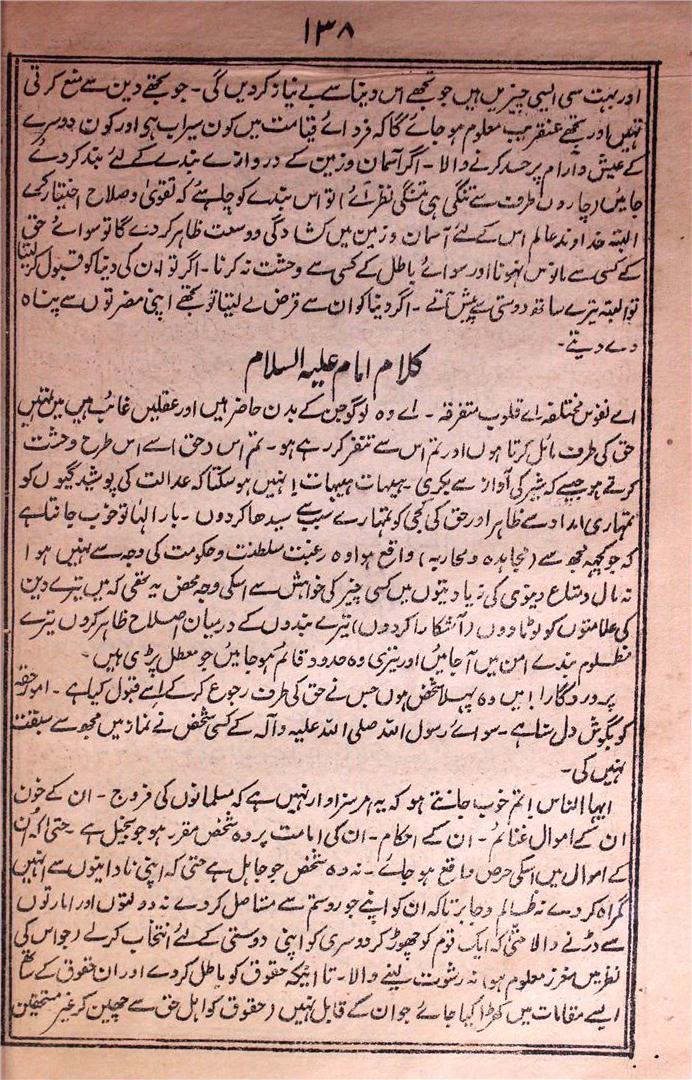 ۱۳۸
اور بہت سی ایسی چیزیں ہیں جو تجھے اس دنیا سے بے نیاز کردیں گی۔ جو تجھے دین سے منع کرتی
تھیں اور تجھے عنقریب معلوم ہو جائے گا کہ فردائے قیامت میں کون سیراب ہی اور کون دوسرے
کے عیش و آرام پر حسد کرنے والا۔ اگر آسمان و زمین کے دروازے بندے کے لئے بند کردے
جائیں (چاروں طرف سے تنگی ہی تنگی نظر آئے) تو اس بندے کو چاہئے کہ تقویٰ و صلاح اختیار کرے
البتہ خداوند عالم اس کے لئے آسمان و زمین میں کشادگی و وسعت ظاہر کردے گا تو سوائے حق
کے کسی سے مانوس نہونا اور سوائے باطل کے کسی سے وحشت نہ کرنا۔ اگر تو ان کی دنیا کو قبول کرلیتا
تو البتہ تیرے ساتھ دوستی سے پیش آتے۔ اگر دنیا کو ان سے قرض لے لیتا تو تجھے اپنی مضرتوں سے پناہ
دے دیتے۔
کلام امام علیہ السلام
اے نفوس مختلفہ اے قلوب متفرقہ۔ اے وہ لوگو جن کے بدن حاضر ہیں اور عقلیں غائب ہیں میں تمہیں
حق کی طرف مائل کرتا ہوں اور تم اس سے تنفر کر رہے ہو۔ تم اس دحق سے اس طرح وحشت
کرتے ہو جیسے کہ شیر کی آواز سے بکری۔ ہیہات ہیہات! نہیں ہوسکتا کہ عدالت کی پوشیدگیوں کو
تمہاری امداد سے ظاہر اور حق کی کجی کو تمہارے سبب سے سیدھا کردوں۔ بار الٰہا تو خوب جانتا ہے
کہ جو کچھ مجھ سے (مجاہدہ و محاربہ) واقع ہوا وہ رغبت سلطنت و حکومت کی وجہ سے نہیں ہوا
نہ مال و متاع دنیوی کی زیادتیوں میں کسی چیز کی خواہش سے اسکی وجہ محض یہ تھی کہ میں تیرے دین
کی علامتوں کو لوٹا دوں (آشکارا کردوں) تیرے بندوں کے درمیان اصلاح ظاہر کروں تیرے
مظلوم بندے امن میں آجائیں اور تیری وہ حدود قائم ہو جائیں جو معطل پڑی ہیں۔
پروردگارا! میں وہ پہلا شخص ہوں جس نے حق کی طرف رجوع کرکے اسے قبول کیا ہے۔ امور حقہ
کو بگوش دل سنا ہے۔ سوائے رسول اللہ صلی اللہ علیہ وآلہ کے کسی شخص نے نماز میں مجھ سے سبقت
نہیں کی۔
ایہا الناس! تم خوب جانتے ہو کہ یہ امر سزاوار نہیں ہے کہ مسلمانوں کی فروج۔ ان کے خون
ان کے اموال غنائم۔ ان کے احکام۔ ان کی امامت پر وہ شخص مقرر ہو جو بخیل ہے۔ حتیٰ کہ ان
کے اموال میں اسکی حرص واقع ہو جائے۔ نہ وہ شخص جو جاہل ہے حتیٰ کہ اپنی نادانیوں سے انہیں
گمراہ کردے نہ ظالم و جابر تاکہ ان کو اپنے جور و ستم سے مستاصل کردے نہ دولتوں اور امارتوں
سے ڈرنے والا حتیٰ کہ ایک قوم کو چھوڑ کر دوسری کو اپنی دوستی کے لئے انتخاب کرلے (جو اس کی
نظر میں معزز معلوم ہو) نہ رشوت لینے والا۔ تا اینکہ حقوق کو باطل کردے اور ان حقوق کے ساتھ
ایسے مقامات میں کھڑا کیا جائے جو ان کے قابل نہیں (حقوق کو اہل حق سے چھین کر غیر مستحقین